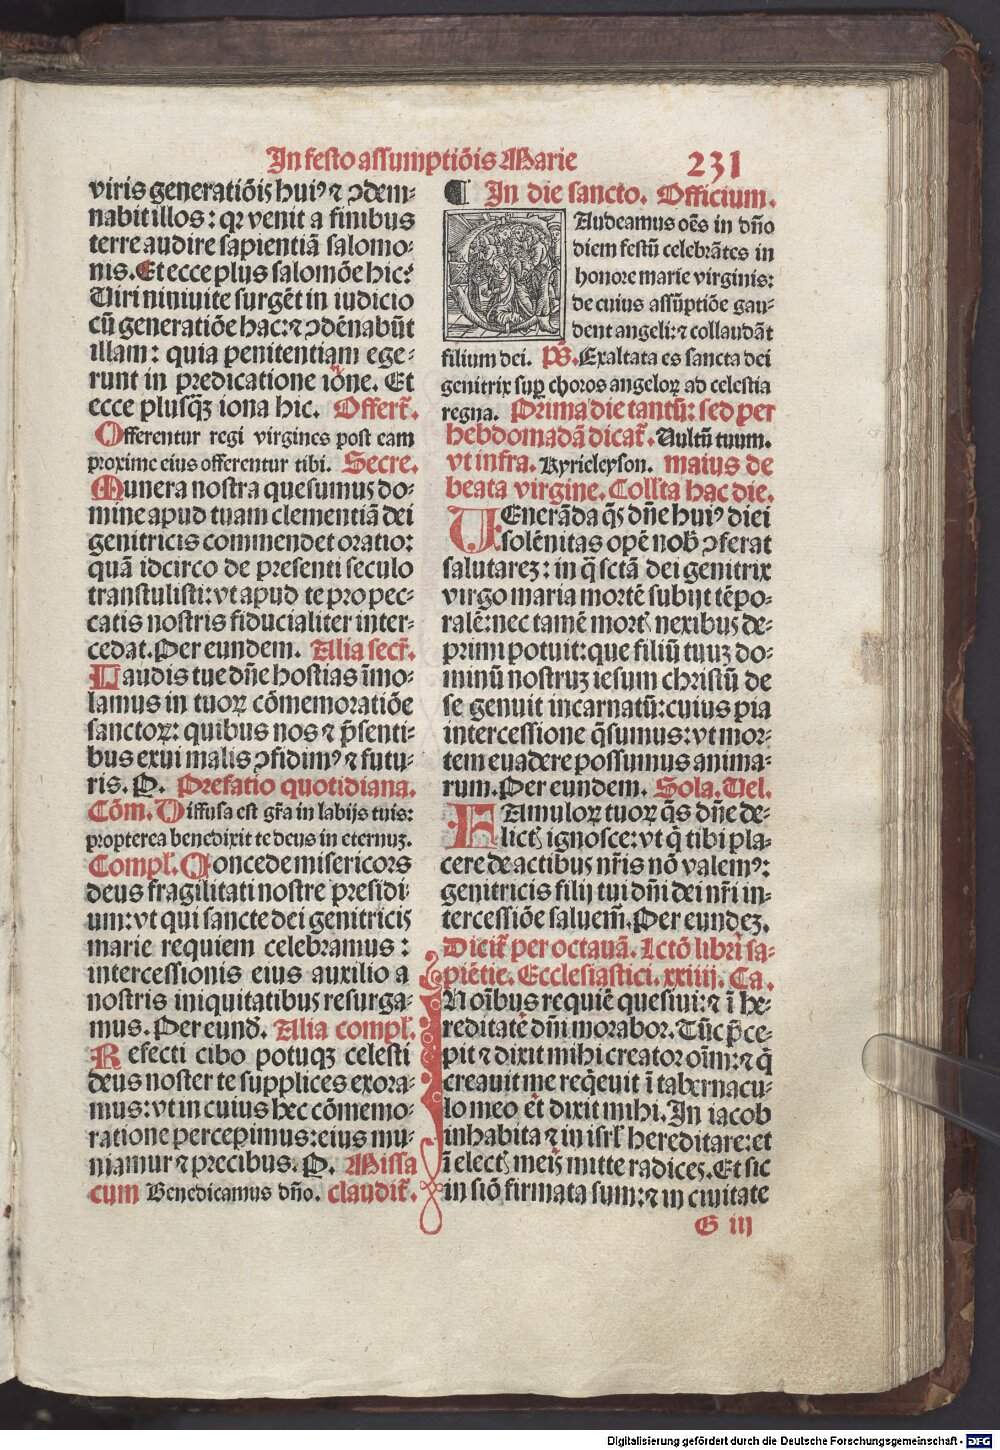 In festo assumptiōis Marie 231
viris generatiōis huiꝰ ⁊ ꝯdem⸗
nabit illos: qꝛ venit a finibus
terre audire sapientiā salomo⸗
nis. Et ecce plus salomōe hic?
Viri niniuite surgēt in iudicio
cū generatiōe hac: ⁊ ꝯdēnabūt
illam: quia penitentiam ege⸗
runt in predicatione iōne. Et
ecce plusqꝫ iona hic. Offert̄.
Offerentur regi virgines post eam
proxime eius offerentur tibi. Secre.
Munera nostra quesumus do⸗
mine apud tuam clementiā dei
genitricis commendet oratio:
quā idcirco de presenti seculo
transtulisti: vt apud te pro pec⸗
catis nostris fiducialiter inter⸗
cedat. Per eundem. Alia secr̄.
Laudis tue dn̄e hostias īmo⸗
lamus in tuoꝝ cōmemoratiōe
sanctoꝝ: quibus nos ⁊ p̄senti⸗
bus exui malis ꝯfidimꝰ ⁊ futu⸗
ris. P. Prefatio quotidiana.
Cōm. Diffusa est gr̄a in labijs tuis:
propterea benedixit te deus in eternuꝫ.
Compl̄. Concede misericors
deus fragilitati nostre presidi⸗
um: vt qui sancte dei genitricis
marie requiem celebramus:
intercessionis eius auxilio a
nostris iniquitatibus resurga⸗
mus. Per eund̄. Alia compl̄.
Refecti cibo potuqꝫ celesti
deus noster te supplices exora⸗
mus: vt in cuius hec cōmemo⸗
ratione percepimus: eius mu⸗
niamur ⁊ precibus. P. Missa
cum Benedicamus dn̄o. claudit̄.
¶ In die sancto. Officium.
GAudeamus oēs in dn̄o
diem festū celebrātes in
honore marie virginis:
de cuius assūptiōe gau⸗
dent angeli: ⁊ collaudāt
filium dei. Ps̄. Exaltata es sancta dei
genitrix suꝑ choros angeloꝝ ad celestia
regna. Prima die tantū: sed per
hebdomadā dicat̄. Vultū tuum.
vt infra. Kyrieleyson. maius de
beata virgine. Collc̄ta hac die.
VEnerāda q̄s dn̄e huiꝰ diei
solēnitas opē nob̄ ꝯferat
salutareꝫ: in q̄ sctā dei genitrix
virgo maria mortē subijt tēpo⸗
ralē: nec tamē mort̄ nexibus de⸗
primi potuit: que filiū tuuꝫ do⸗
minū nostruꝫ iesum christū de
se genuit incarnatū: cuius pia
intercessione q̄sumus: vt mor⸗
tem euadere possumus anima⸗
rum. Per eundem. Sola. Vel.
FAmuloꝝ tuoꝝ q̄s dn̄e de⸗
lict̄ ignosce: vt q̄ tibi pla⸗
cere de actibus nr̄is nō valemꝰ:
genitricis filij tui dn̄i dei nr̄i in⸗
tercessiōe saluem̄. Per eundeꝫ.
Dicit̄ per octauā. Lctō libri sa⸗
piētie. Ecclesiastici. xxiiij. Ca.
IN oībus requiē quesiui: ⁊ ī he⸗
reditate dn̄i morabor. Tūc p̄ce⸗
pit ⁊ dixit mihi creator oīm: ⁊ q̄
creauit me reqͥeuit ī tabernacu⸗
lo meo et dixit mihi. In iacob
inhabita ⁊ in isrl̄ hereditare: et
ī elect̄ meis mitte radices. Et sic
in siō firmata sum: ⁊ in ciuitate
G iij
Digitalisierung gefördert durch die Deutsche Forschungsgemeinschaft - DFG